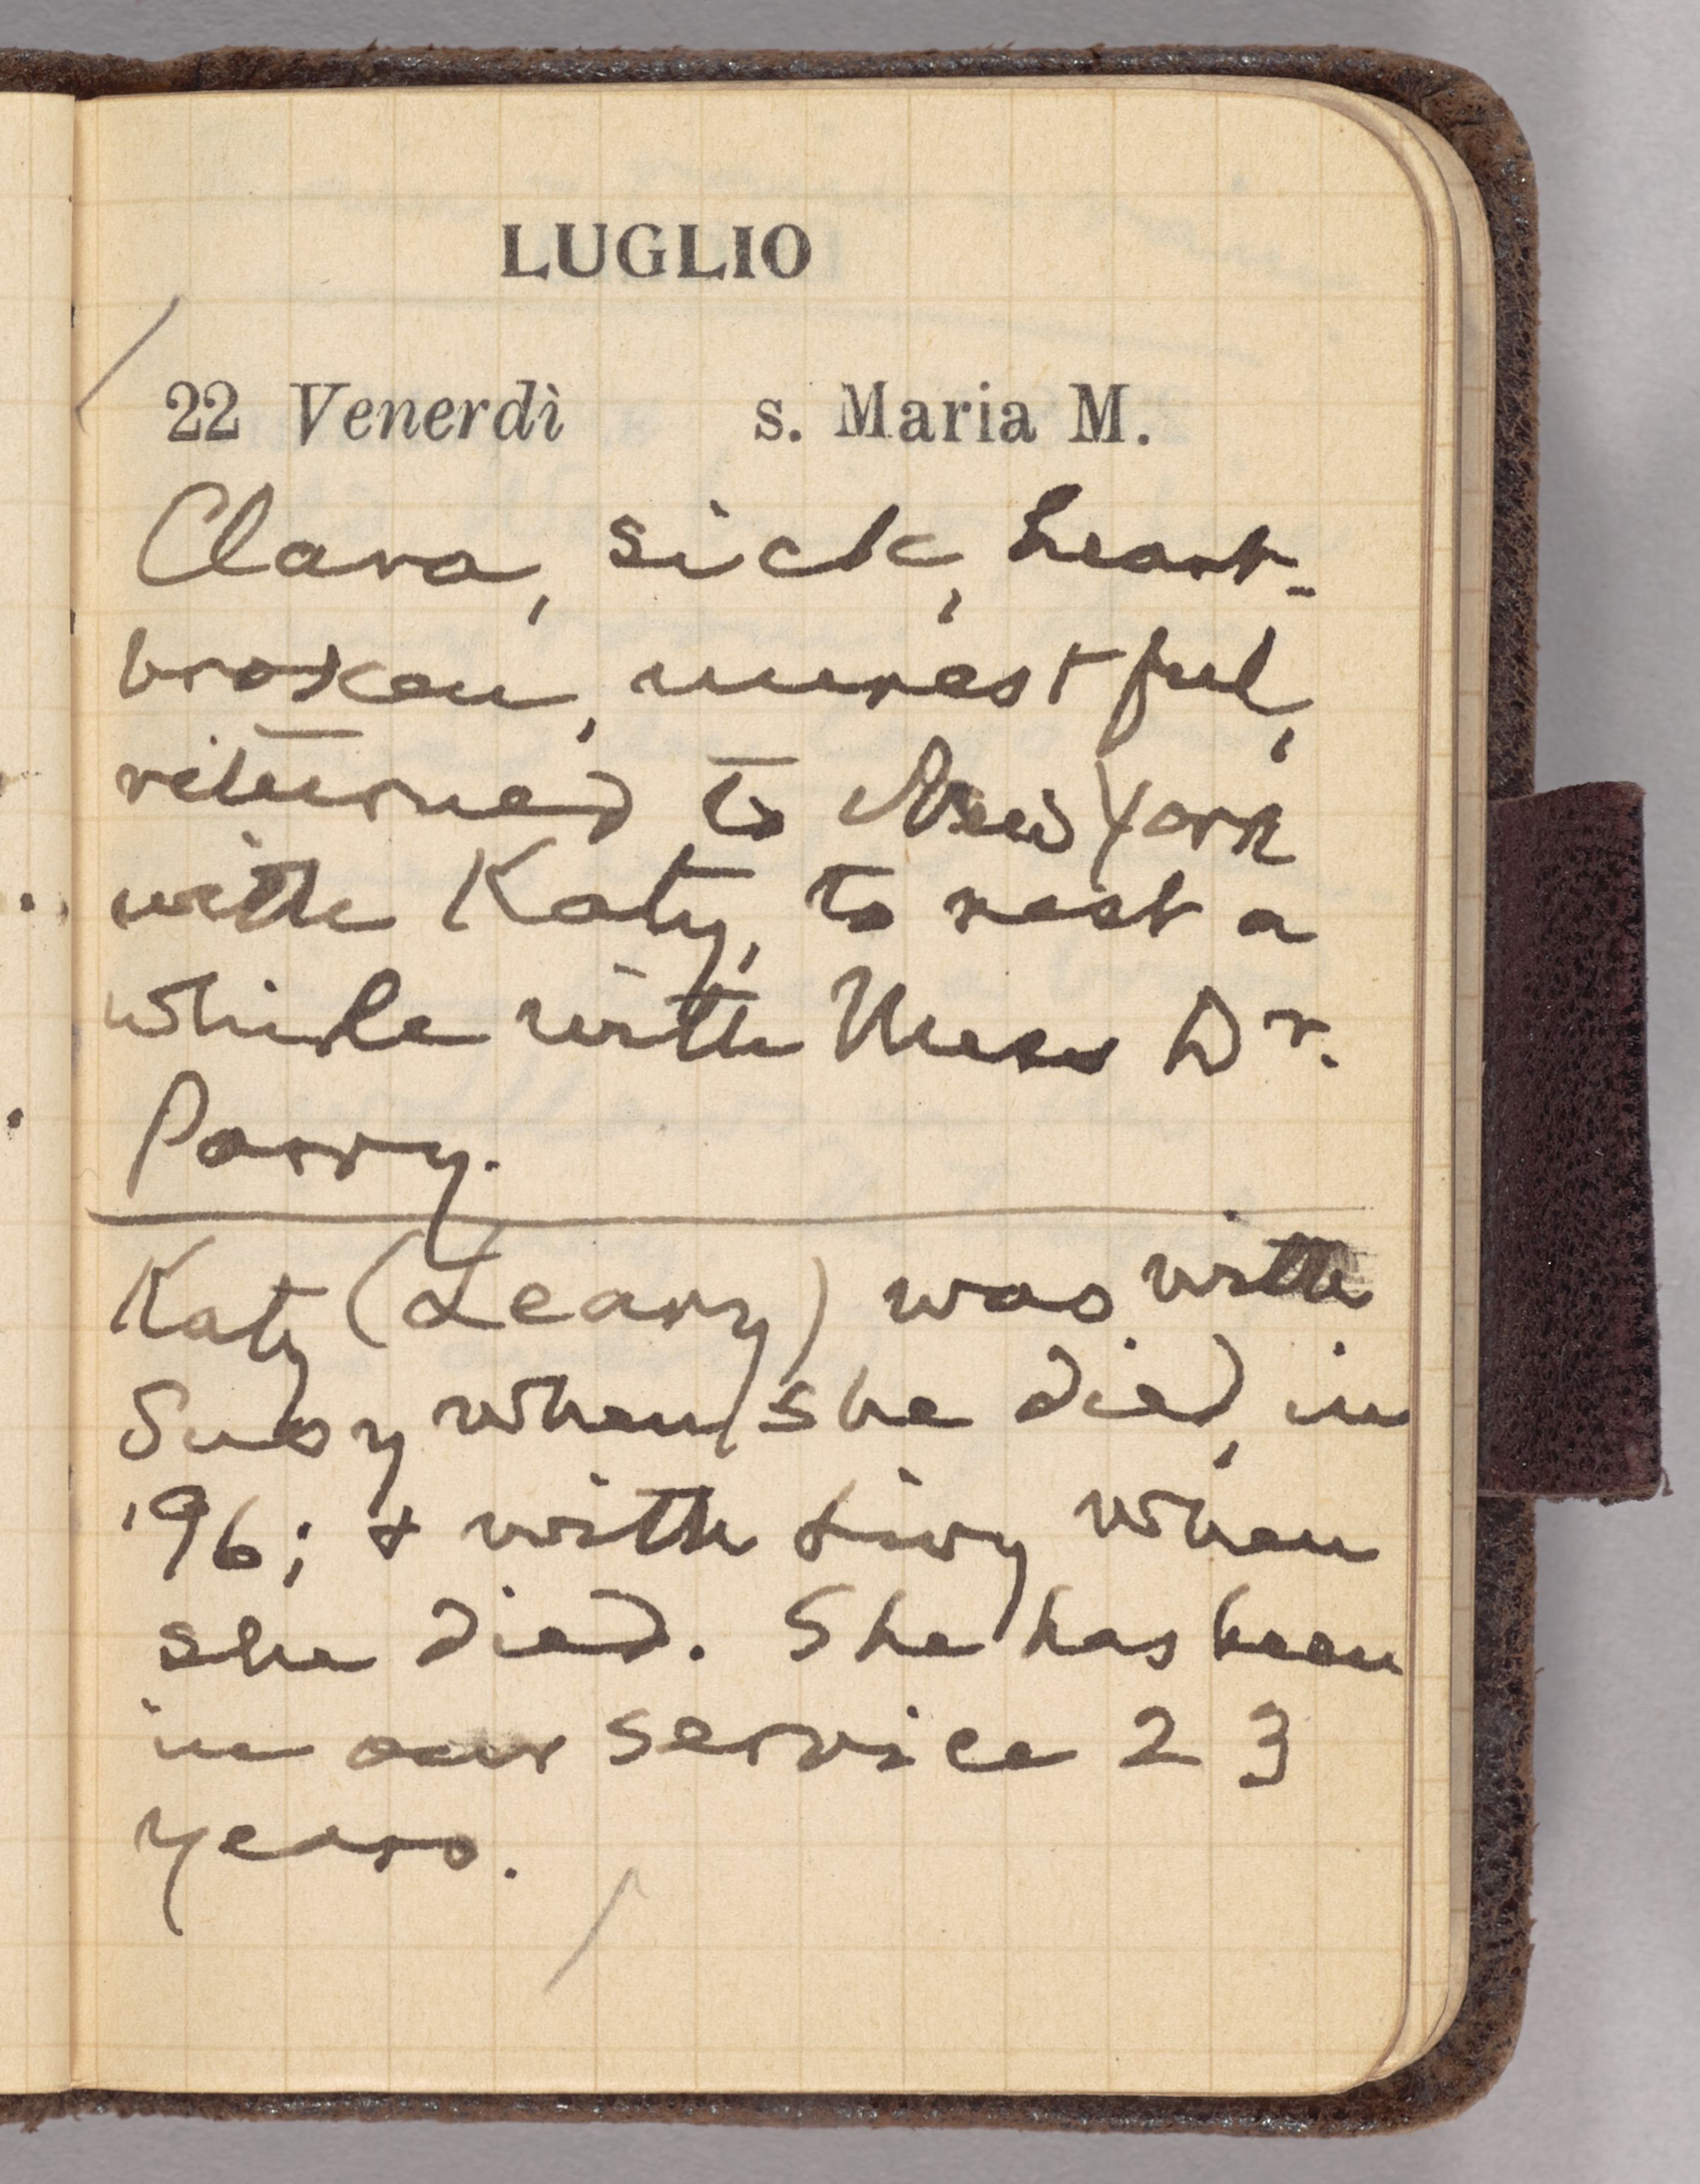 LUGLIO
22 Venerdì s. Maria M.
Clara, sick, heart-
broken, unrestful,
returned to New York
with Katy, to rest a
while with Dr.
Parry.
Katy (Leary) was with
Susy when she died, in
'96; & with Livy when
she died. She has been
in our service 23
years.